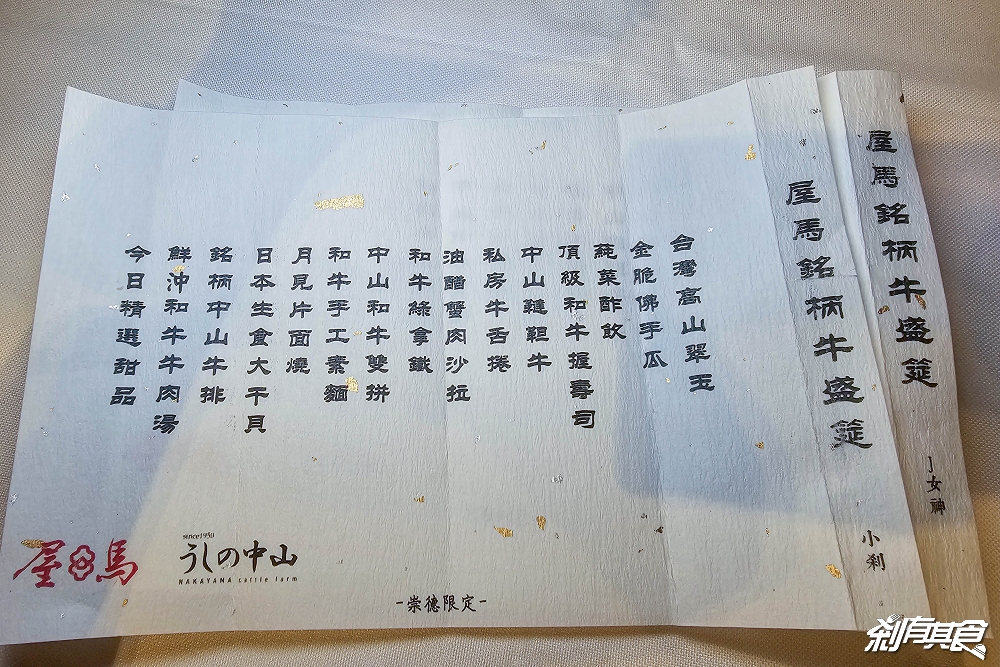 屋馬銘柄牛盛筵
J女神
屋馬銘柄牛盛筵
小刹
台灣高山翠玉
金脆佛手瓜
蒓菜酢飲
頂級和牛握壽司
中山韃靼牛
私房牛舌捲
油醋蟹肉沙拉
和牛綠拿鐵
中山和牛雙拼
和牛手工素麵
月見片面燒
日本生食大干貝
銘柄中山牛排
鮮沖和牛牛肉湯
今日精選甜品
屋馬
since1950
うしの中山
NAKAYAMA cattle farm
-崇德限定-
刹有其食